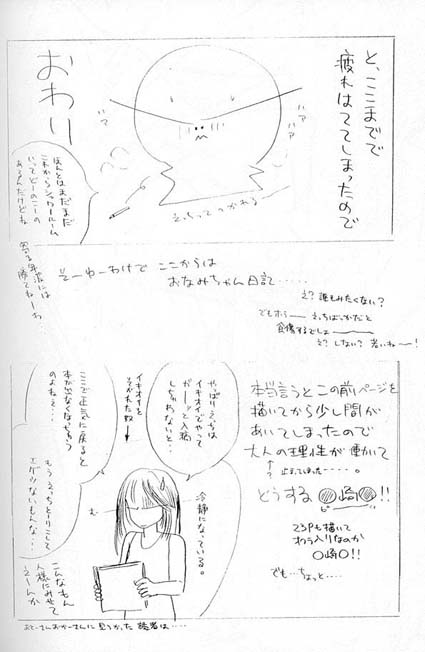 と、ここまでで
疲れはててしまったので
おわり
ハァ
ハァ
えっちってつかれる
ほんとはまだまだ
これからシャワールーム
いってどーのこーの
あるんだけどね
寄る年波には
勝てねーわ
そーゆーわけで ここからは
おなみちゃん日記・・・・・
え？誰もみたくない？
でもホラーえっちばっかだと
食傷するでしょ
え？しない？若いねー！
本当言うとこの前ページを
描いてから少し間が
あいてしまったので
大人の理性が働いて
止まってしまった・・・・。
どうする〇崎〇!!
23Pも描いて
オクラ入りなのか
〇崎〇!!
でも…ちょっと…
やっぱりえっちは
イキオイでやって
ガーッと入稿
しちゃわないと…
冷静になっている。
イキオイを
そがれた奴
ここで正気に戻ると
本が出なくなっちゃう
のよね…
もうえっちとーりこして
エゲツないもんな…
こんなもん
人様にみせて
えーんか
おとーさんおかーさんに見つかった読者は・・・・